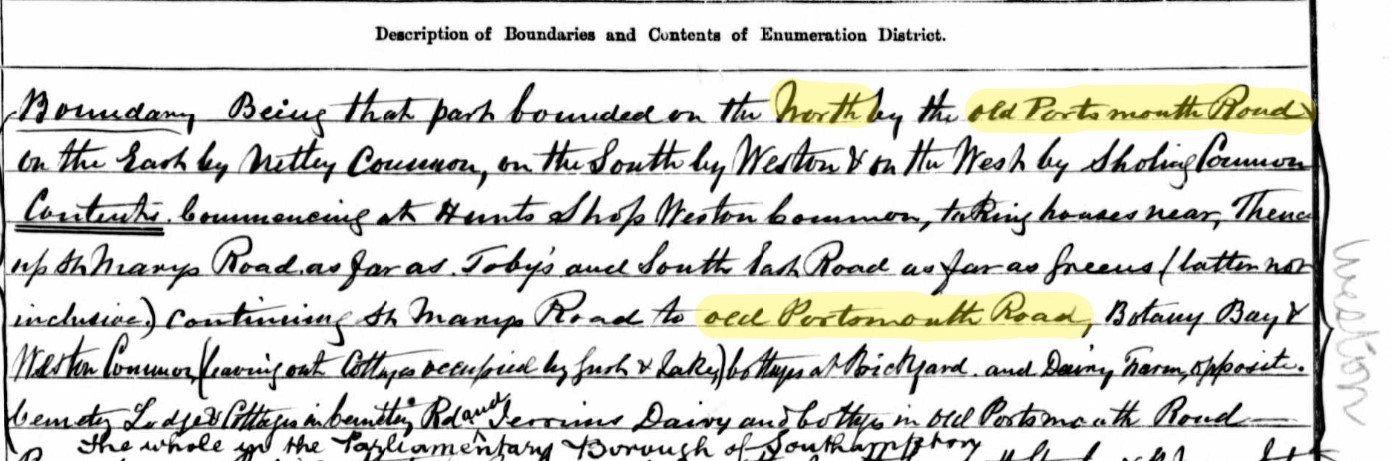 Description of Boundaries and Contents of Enumeration District.
Boundary Being that part bounded on the North by the old Portsmouth Road &
on the East by Netley Common, on the South by Weston & on the West by Sholing Common
Contents. Commencing at Hunts Shop Weston Common, taking houses near, Thence
up St Marys Road as far as Toby's and South East Road as far as Greens (latter not
inclusive.) Continuing St Marys Road to old Portsmouth Road, Botany Bay &
Weston Common, (leaving out Cottages occupied by & Lake,) Cottages at Brickyard. and Dairy Farm, opposite.
Cemetery Lodge & Cottages in Cemetery Rd and Dairy and Cottages in Old Portsmouth Road
The whole in the Parliamentary Borough of Southampton
Weston